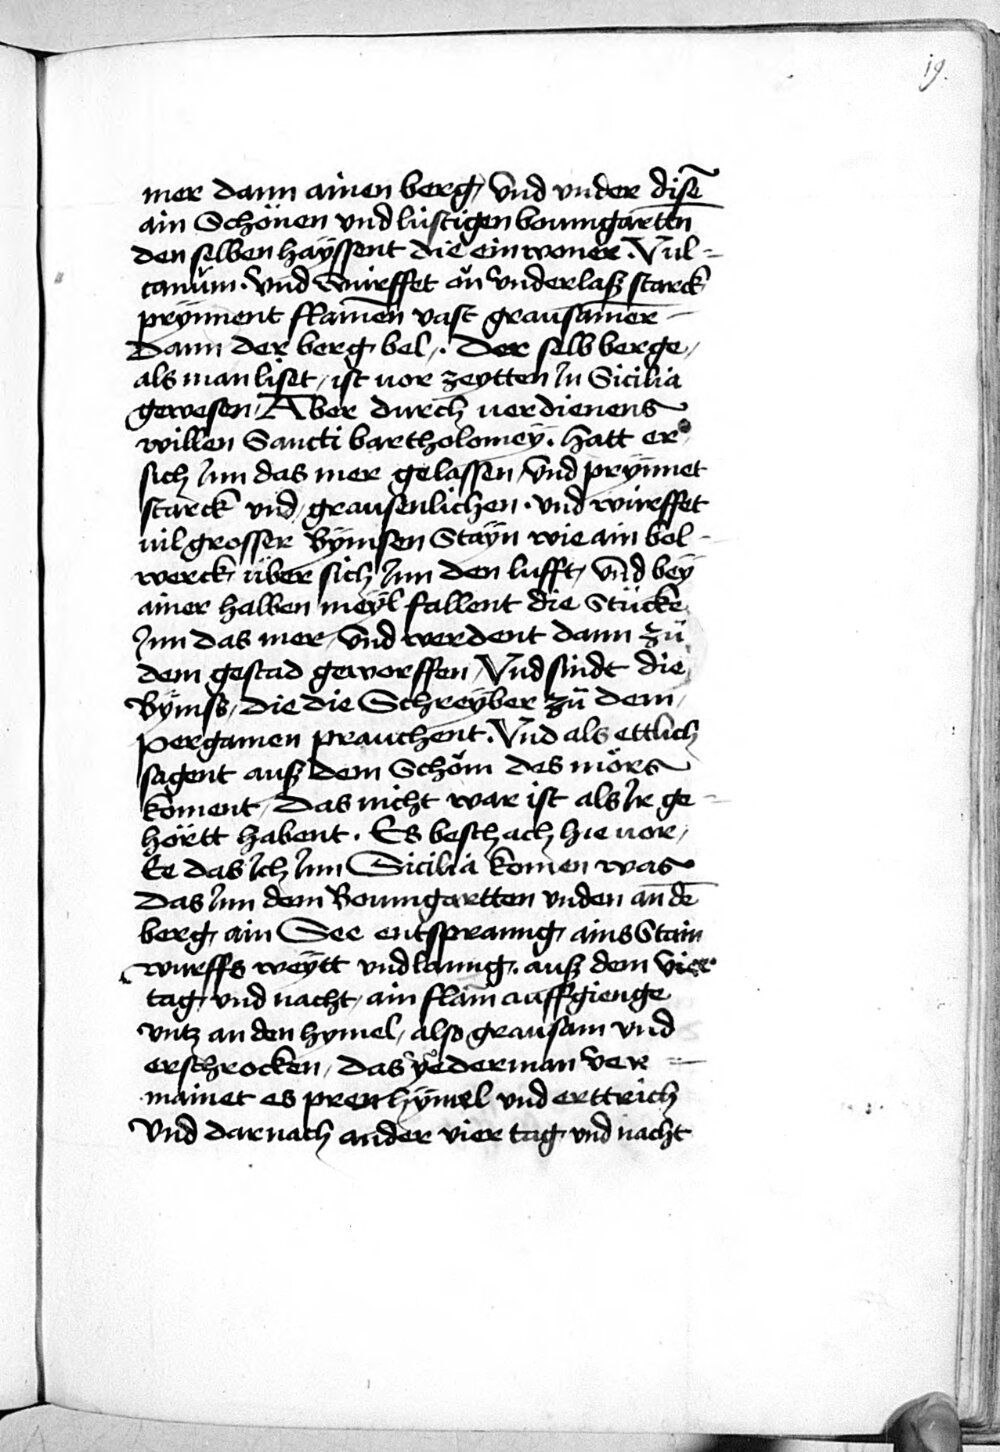 19.
mer dann ainen berg, Vnd vnder disē
ain Schönen vnd lustigen boumgartten
den selben hayssent die einwoner. Vul=
canum. Vnd wirffet on Vnderlasz starck
prynnent flamen vast grausamer
Dann der berg bel. Der selb berge,
als man liset, ist vor zeytten In Sicilia
gewesen, Aber durch verdienens
willen Sancti bartholomey. hatt er
sich Inn das mer gelassen, Vnd prynnet
starck vnd grausenlichen. vnd wirffet
vil grosser Bymsen Stayn wie ain bol=
werck, über sich Inn den lufft, Vnd bey
ainer halben meyl fallent die Stücke
Inn das mer, Vnd werdent dann zü
dem gestad geworffen, Vnd sindt die
Bymss, die die Schreyber zü dem,
pergamen prauchent. Vnd als ettlich
sagent ausz dem Schöm des mörs
koment, Das nicht war ist als Ir ge=
hörtt habent. Es beschach hie vor,
Ee das Ich Inn Sicilia komen was
Das Inn dem Boumgartten vnden an dē
berg, ain See entspranng, ains Stain
wurffs weytt vnd lanng. ausz dem Vier
tag, vnd nacht, ain flam auffgienge
vntz an den hymel, also grausam vnd
erschrocken, das yederman Ver=
mainet es pren hymel vnd erttrich
Vnd darnach ander vier tag, vnd nacht